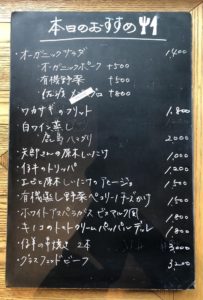 本日のおすすめ
・オーガニックサラダ 1,400
・オーガニックポーク +500
・有機野菜 +500
・佐渡 グロ +800
・ワカサギのフリット 1,800
・白ワイン蒸し
鹿島ハマグリ 2000
・矢部さんの原木しいたけ 1,000
・仔牛のトリッパ 1,200
・エビと原木しいたけのアヒージョ 1,500
・有機蒸し野菜ペコリーノチーズがけ 1,500
・ホワイトアスパラガス ビスマルク風 1,800
・キノコのトマトクリームパッパルデッレ 1,800
・仔羊の串焼き 2本 3,000
・グラスフェッドビーフ 3,200